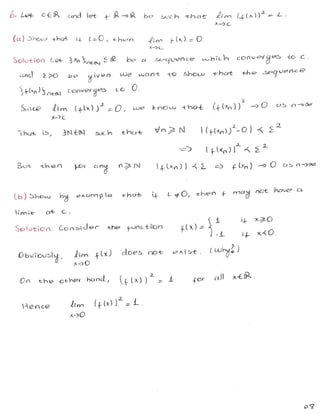 6. Let c∈R and let f: R→R be such that lim (f(x))² = L.
x→c
(a) Show that if L=0, then lim f(x) = 0.
x→c
Solution Let {xn}n∈N ⊆ R be a sequence which converges to c.
and ε>0 be given we want to show that the sequence
{f(xn)}n∈N converges to 0.
Since lim (f(x))² = 0, we know that (f(xn))² → 0 as n→∞
x→c
That is, ∃N∈N such that ∀n ≥ N |(f(xn))² - 0| < ε²
=> |f(xn)|² < ε²
But then for any n≥N |f(xn)| < ε => f(xn) → 0 as n→∞
(b) Show by example that if L≠0, then f may not have a
limit at c.
Solution: Consider the function f(x) = { 1 if x≥0
-1 if x<0.
Obviously, lim f(x) does not exist. (Why?)
x→0
On the other hand, (f(x))² = 1 for all x∈R.
Hence lim (f(x))² = 1.
x→0